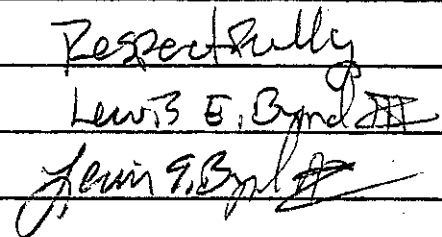 Respectfully
Lewis E. Byrd III
Lewis E. Byrd III